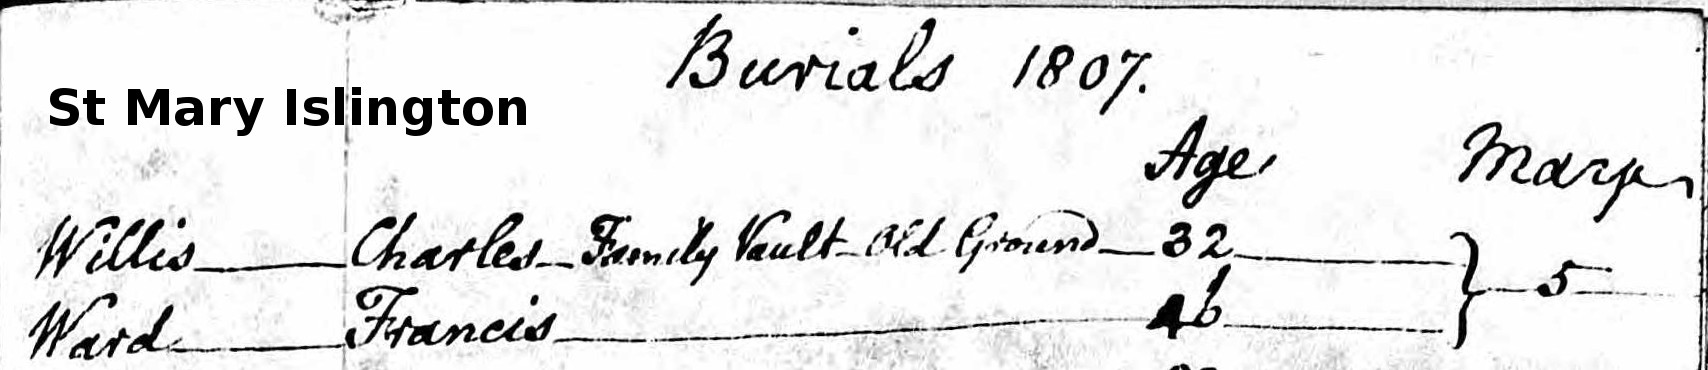 Burials 1807.
St Mary Islington
Age
Willis Charles Family Vault Old Ground 32 } 5
Ward Francis 46